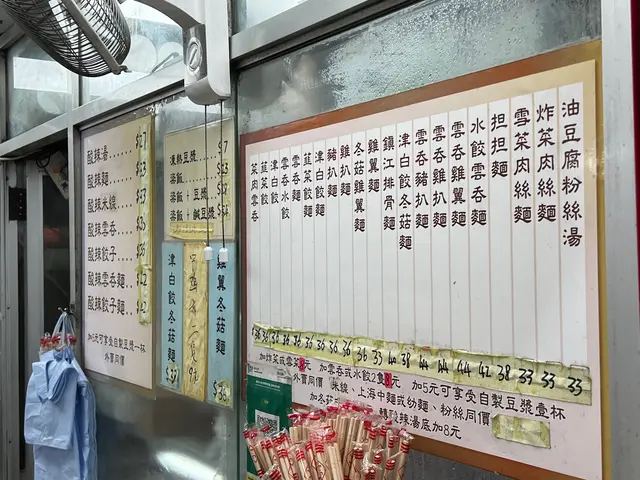 酸辣湯
酸辣麵
酸辣米線
酸辣雲吞
酸辣餃子
酸辣雲吞麵
酸辣餃子麵
加5元可享受自製豆漿一杯
外賣同價
凍熱豆漿
粢飯
粢飯+豆漿
粢飯+鹹豆漿
津白餃冬菇麵
雞翼冬菇麵
油豆腐粉絲湯
炸菜肉絲麵
雪菜肉絲麵
担担麵
水餃雲吞麵
雲吞雞翼麵
雲吞雞扒麵
雲吞豬扒麵
津白餃冬菇麵
鎮江排骨麵
雞翼麵
冬菇雞翼麵
雞扒麵
豬扒麵
津白餃麵
韮菜餃麵
雲吞麵
雲吞水餃
津白餃
韮菜餃
菜肉雲吞
36 33 40 38 44 44 44 42 38 33 33 33
加炸菜或雪菜 元 加雲吞或水餃2隻 元 加5元可享受自製豆漿壹杯
外賣同價 米線、上海中麵或幼麵、粉絲同價
辣湯底加8元